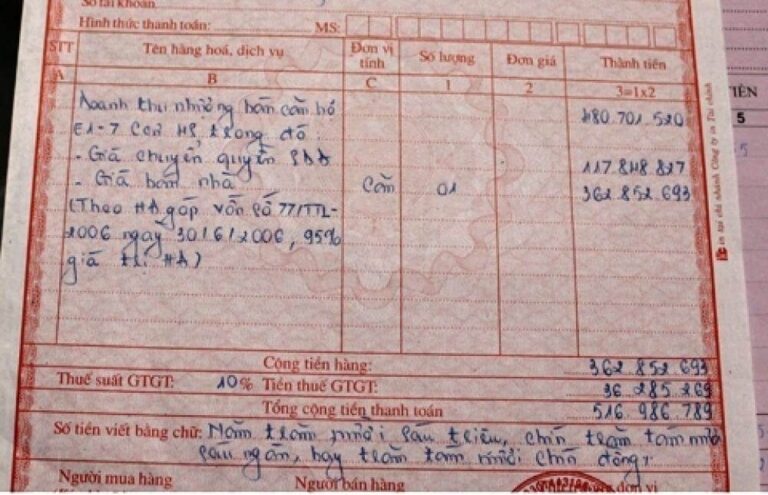 Số tài khoản
Hình thức thanh toán: MS:
STT Tên hàng hoá, dịch vụ Đơn vị tính Số lượng Đơn giá Thành tiền
A B C 1 2 3=1x2
Doanh thu nhượng bán căn hộ 480.701.520
E1-7 trong đó:
- Giá chuyển quyền SDĐ 117.848.827
- Giá bán nhà Căn 01 362.852.693
(Theo HĐ góp vốn số 77/TTL-
2006 ngày 30/6/2006, 95%
giá trị HĐ)
Cộng tiền hàng: 362.852.693
Thuế suất GTGT: 10% Tiền thuế GTGT: 36.285.269
Tổng cộng tiền thanh toán 516.986.789
Số tiền viết bằng chữ: Năm trăm mười sáu triệu, chín trăm tám mươi
sáu ngàn, bảy trăm tám mươi chín đồng.
Người mua hàng Người bán hàng đơn vị
TIỀN
5